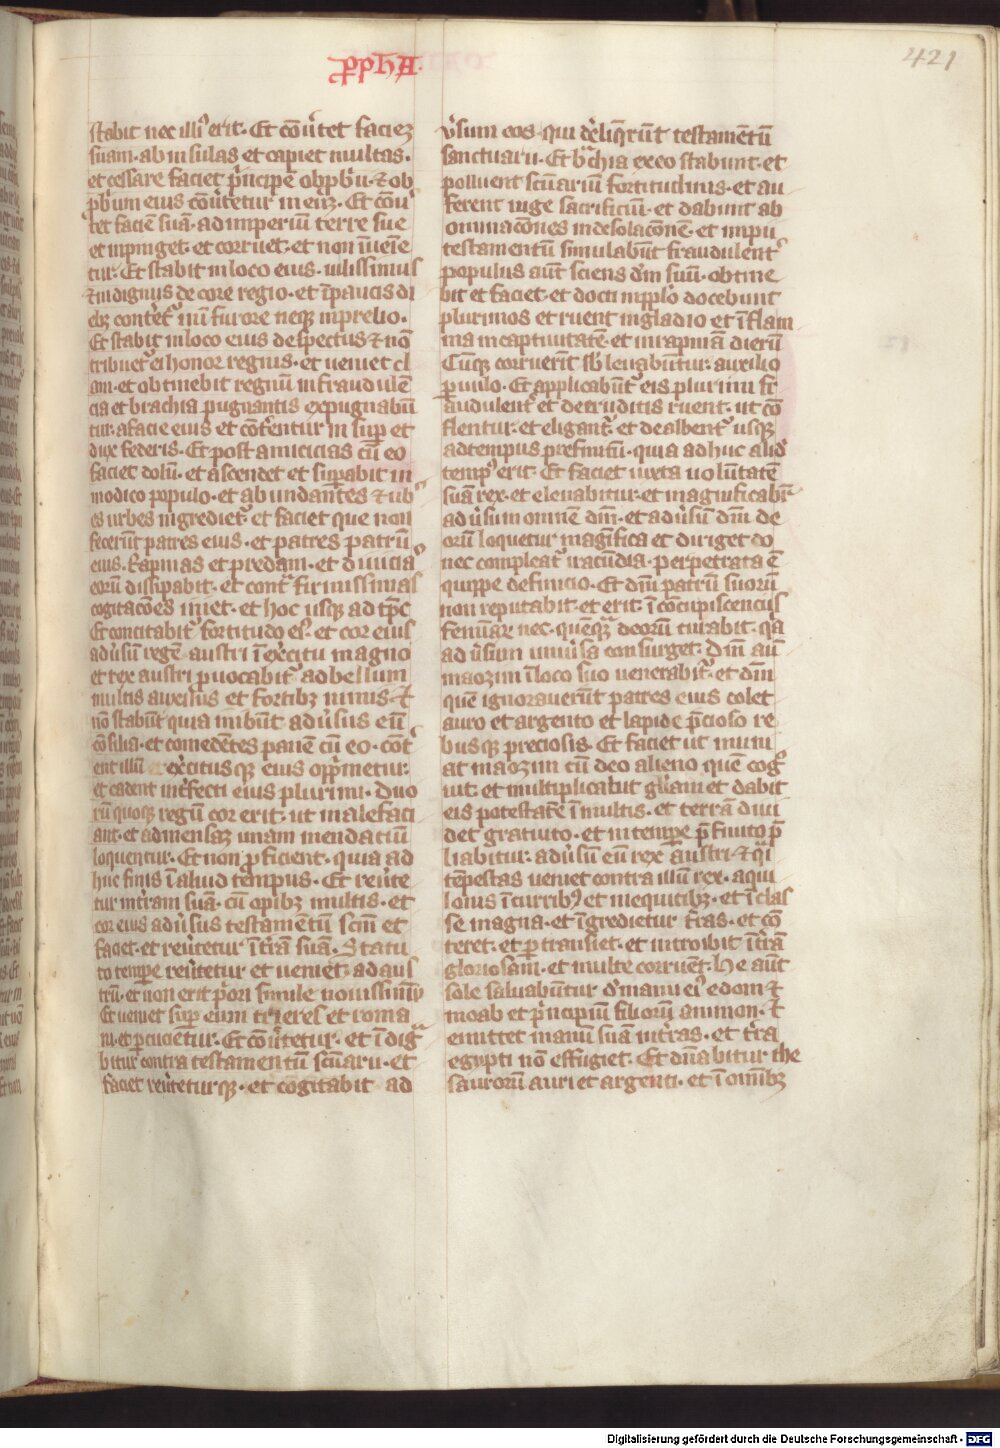 ꝓphA
421
stabit nec illi᾽ erit. Et cōu̾tet faciez
suam. ab insulas et capiet multas.
et cessare faciet p̾ncipē obpb̾u. ⁊ ob
p̾b̾um eius cōu̾tetur in eūꝫ. Et cōu̾
tet faciē suā. ad imperiū terre sue
et inpinget. et corruet. et non īueīe
tur. Et stabit in loco eius. uilissimus
⁊ indignus decore regio. et ī paucis di
ebꝫ conte̾t᾽ nū furore neqꝫ in prelio.
Et stabit in loco eius despectus ⁊ nō
tribuet᾽ ei honor regius. et ueniet cl
am. et obtinebit regnū in fraudulē
cia et brachia pugnantis expugnabū
tur. a facie eius et cōte̾entur in sup̄ et
dux federis. Et post amicicias cū eo
faciet dolū. et ascendet et sup̾abit in
modico populo. et abundantes ⁊ ub᾽
es urbes ingrediet᾽. et faciet que non
fecerūt patres eius. et patres patrū
eius. Rapinas et predam. et diuicia᾽
eorū dissipabit. et cont᾽ firmissimas
cogitacōes iniet. et hoc usqꝫ ad tp̄c
Et concitabit᾽ fortitudo ei᾽. et cor eius
adu̾sū regē austri ī exe̾citu magno
et rex austri puocabit᾽ ad bellum
multis auxilijs et fortibꝫ nimis. ⁊
nō stabūt quia inibūt adu̾sus eū
cōsilia. et comedētes panē cū eo. cōt᾽
ent illū exe̾citusqꝫ eius opp̄metur.
et cadent int̾fecti eius plurimi. Duo
rū quoqꝫ regū cor erit. ut malefaci
ant. et ad mensaꝫ unam mendatiū
loquentur. Et non ꝓficient. quia ad
huc finis ī aliud tēmpus. Et reu̾te
tur in t̾ram suā. cū opibꝫ multis. et
cor eius adu̾sus testamentū sc̄m et
faciet. et reu̾tetur ī t̾rā suā. Statu
to tempe reu̾tetur et ueniet᾽ ad aus
trū. et non erit p̾ori simile nouissimū
Et uenient sup̄ eum trieres et roma
ni. et ꝑcucientur. Et cōu̾tetur. et ī dig᾽
bitur contra testamentū scūaru. et
faciet reu̾teturqꝫ. et cogitabit ad
u̾sum eos qui de̾liq̾rūt testamētū
sanctuarij. Et b̾chia ex eo stabunt. et
polluent scūariū fortitudinis. et au
ferent iuge sacrificiū. et dabunt ab
ominacōnes in desolacōnē. et impij
testamentū simulabūt fraudulent᾽
populus aūt sciens dm̄ suū. obtine
bit et faciet. et docti in pplo docebunt
plurimos et ruent in gladio et ī flam
ma in captiuitatē. et in rapinā dierū
Cūqꝫ corruerīt sb̾leuabūtur. auxilio
ꝑuulo. Et applicabūt᾽ eis plurimi fr
audulent᾽ et de eruditis ruent. ut cō
flentur. et eligant᾽. et dealbent᾽ usqꝫ
ad tempus prefinitū. quia adhuc aliđ
temp᾽ erit. Et faciet iuxta uolūtatē
suā rex. et eleuabitur. et magnificab̾r
adu̾sum omnē dm̄. et adu̾sū dm̄ de
orū loquetur magnifica et diriget do
nec compleat᾽ iracūdia. perpetrata ē
quippe definicio. Et dm̄ patrū suorū
non reputabit. et erit. ī concupiscencijs
feminare nec. quēqꝫ deorū curabit. q̄a
adu̾sum uniu̾sa consurget. Dm̄ aū
maozim ī loco suo uenerabit᾽. et dm̄
quē ignorauerūt patres eius colet
auro et argento et lapide p̄cioso re
busqꝫ preciosis. Et faciet ut muni
at maozim cū deo alieno quē cog᾽
uit. et multiplicabit gl̄iam et dabit
eis potestatē ī multis. et terrā diui
det gratuito. et in tempe p̄finito p̄
liabitur. adu̾sū eū rex austri. ⁊ q̄i
tēpestas ueniet contra illū rex. aqui
lonis ī curribꝫ et in equitibꝫ. et ī clas
se magna. et īgredietur t̾ras. et cō
teret. et ꝑtransiet. et introibit ī t̾rā
gloriosam. et multe corruēt. He aūt
sole saluabūtur d᾽ manu ei᾽ edom ⁊
moab et p̾ncipiū filiorū ammon. ⁊
emittet manū suā in t̾ras. et t̾ra
egypti nō effugiet. Et dn̄abitur the
saurorū auri et argenti. et ī om̄ibꝫ
Digitalisierung gefördert durch die Deutsche Forschungsgemeinschaft - DFG